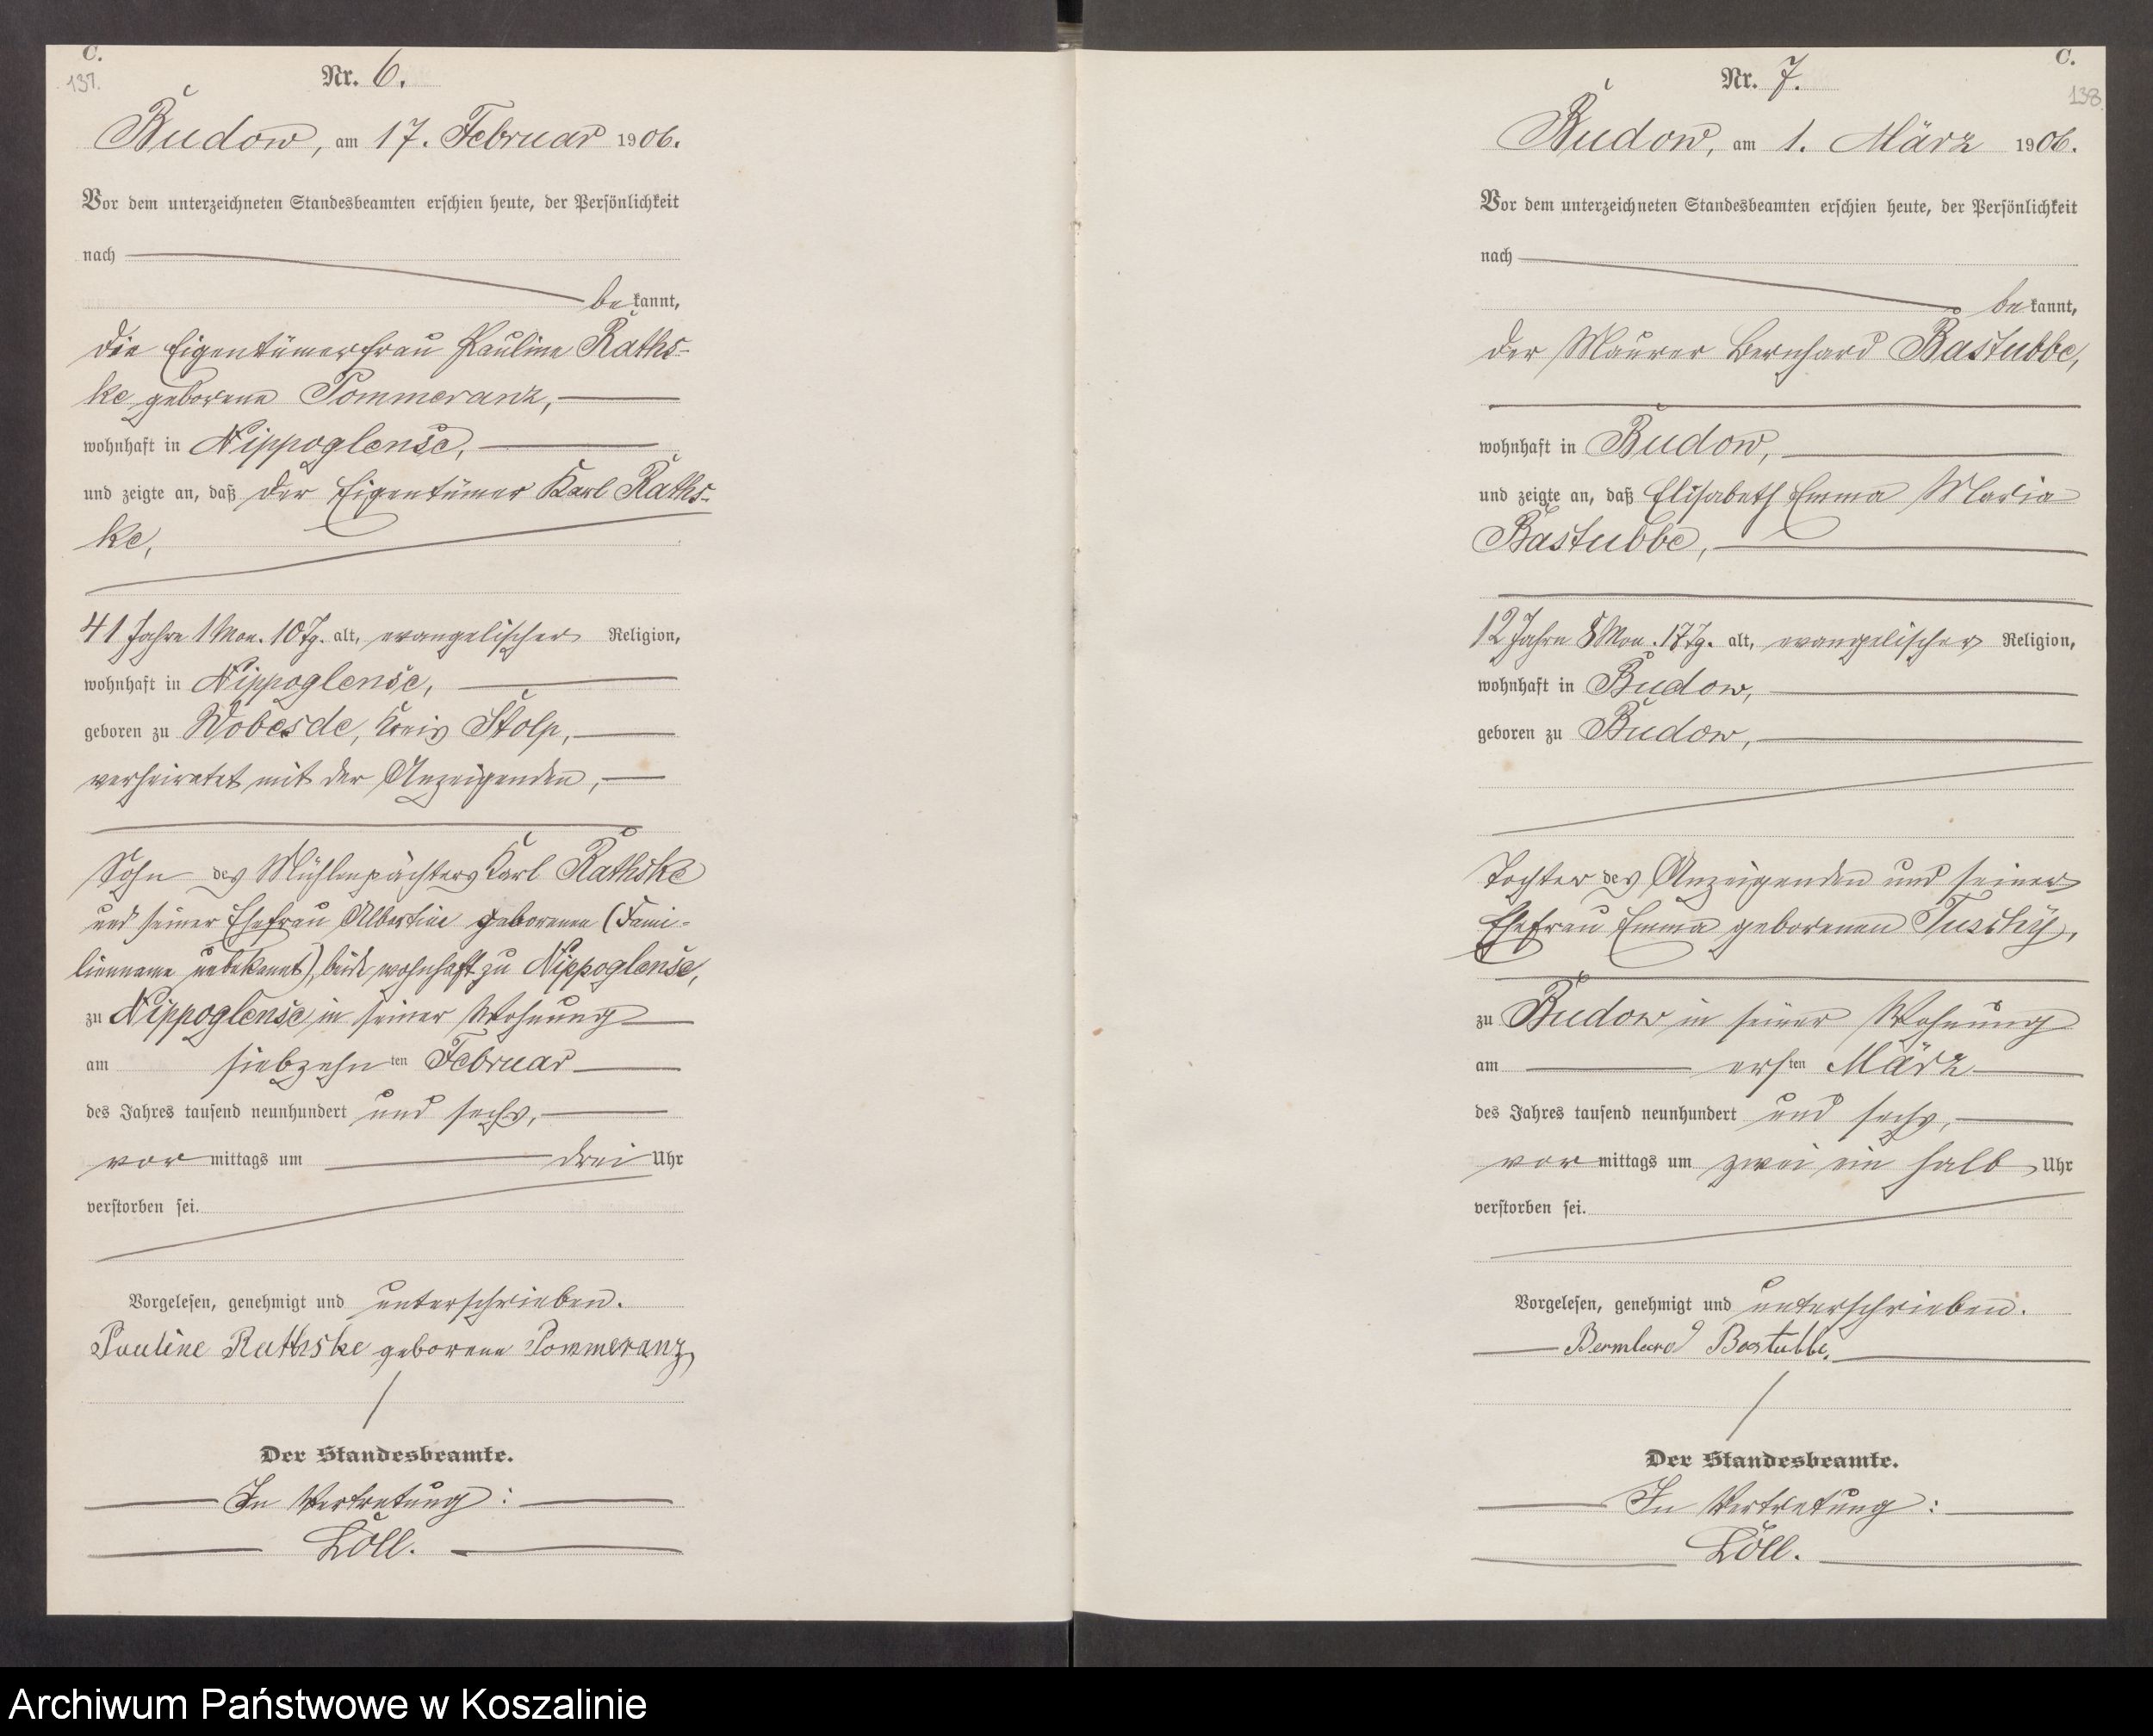 C.
137.
Nr. 6.
Budow, am 17. Februar 1906.
Vor dem unterzeichneten Standesbeamten erschien heute, der Persönlichkeit
nach
bekannt,
die Eigentümerfrau Pauline Raths-
ke geborene Pommeranz,
wohnhaft in Nippoglense,
und zeigte an, daß der Eigentümer Karl Raths-
ke,
41 Jahre 1 Mon. 10 Tg. alt, evangelischer Religion,
wohnhaft in Nippoglense,
geboren zu Wobesde, Kreis Stolp,
verheiratet mit der Anzeigenden,
Sohn des Mühlenpächters Karl Rathske
und seiner Ehefrau Albertine geborenen (Fami-
lienname unbekannt), beide wohnhaft zu Nippoglense,
zu Nippoglense in seiner Wohnung
am siebzehnten Februar
des Jahres tausend neunhundert und sechs,
vormittags um drei Uhr
verstorben sei.
Vorgelesen, genehmigt und unterschrieben.
Pauline Rathske geborene Pommeranz
Der Standesbeamte.
In Vertretung:
Löll.
C.
138.
Nr. 7.
Budow, am 1. März 1906.
Vor dem unterzeichneten Standesbeamten erschien heute, der Persönlichkeit
nach
bekannt,
der Maurer Bernhard Bastubbe,
wohnhaft in Budow,
und zeigte an, daß Elisabeth Emma Maria
Bastubbe,
12 Jahre 8 Mon. 17 Tg. alt, evangelischer Religion,
wohnhaft in Budow,
geboren zu Budow,
Tochter des Anzeigenden und seiner
Ehefrau Emma geborenen
zu Budow in seiner Wohnung
am ersten März
des Jahres tausend neunhundert und sechs,
vormittags um zwei ein halb Uhr
verstorben sei.
Vorgelesen, genehmigt und unterschrieben.
Bernhard Bastubbe.
Der Standesbeamte.
In Vertretung:
Löll.
Archiwum Państwowe w Koszalinie